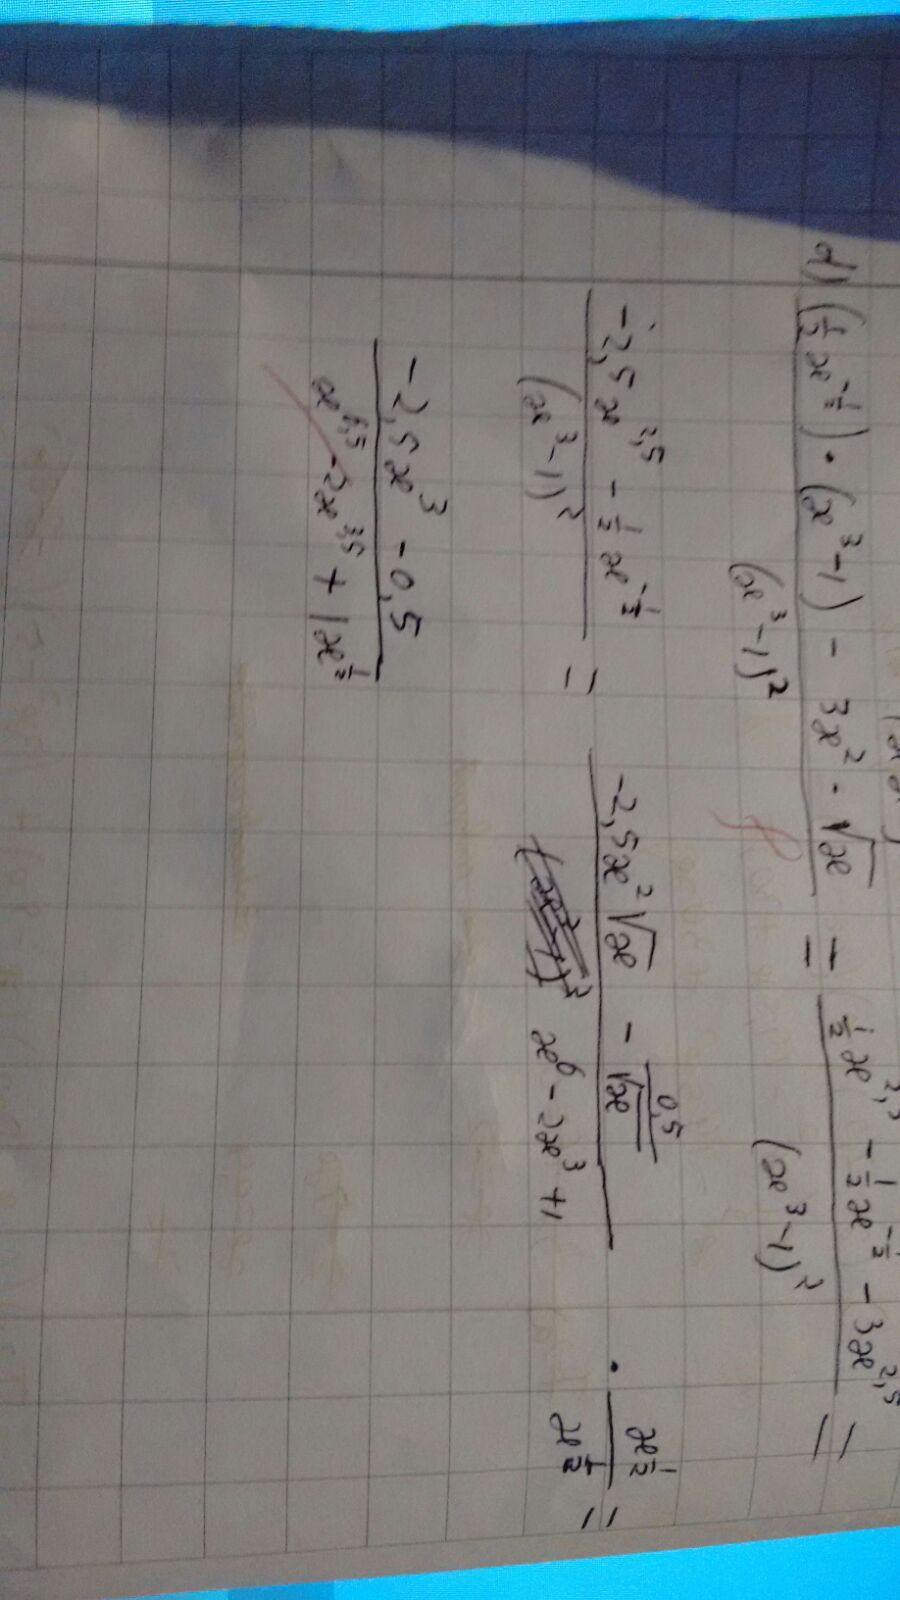 d) ((1/2 x^(-1/2)) · (x^3 - 1) - 3x^2 · √x) / (x^3 - 1)^2 = (1/2 x^2,5 - 1/2 x^(-1/2) - 3x^2,5) / (x^3 - 1)^2 =
(-2,5x^2,5 - 1/2 x^(-1/2)) / (x^3 - 1)^2 = (-2,5x^2√x - 0,5/√x) / (x^6 - 2x^3 + 1) · x^(1/2) / x^(1/2) =
(-2,5x^3 - 0,5) / (x^6,5 - 2x^3,5 + 1x^(1/2))